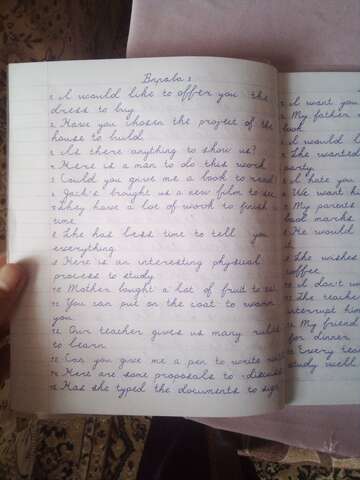 Вправа 2
1. I would like to offer you this
dress to buy.
2. Have you chosen the project of the
house to build.
3. Is there anything to show us?
4. Here is a man to do this work.
5. Could you gave me a book to read
6. Jack's brought us a new film to see
7. They have a lot of work to finish
time.
8. She has less time to tell you
everything.
9. Here is an interesting physical
process to study.
10. Mother bought a lot of fruit to eat.
11. You can put on the coat to warm
you.
12. Our teacher gives us many rules
to learn.
13. Can you give me a pen to write
14. Here are some proposals to discuss
15. Has she typed the documents to sign
1. I want you
2. My father
look.
3. I would l
4. She wanted
party.
5. I hate you
6. We want hi
7. My parents
book marks.
8. He would
it.
9. She wishes
coffee.
10. I don't w
11. The teache
interrupt him
12. My friend
for dinner.
13. Every tea
study well